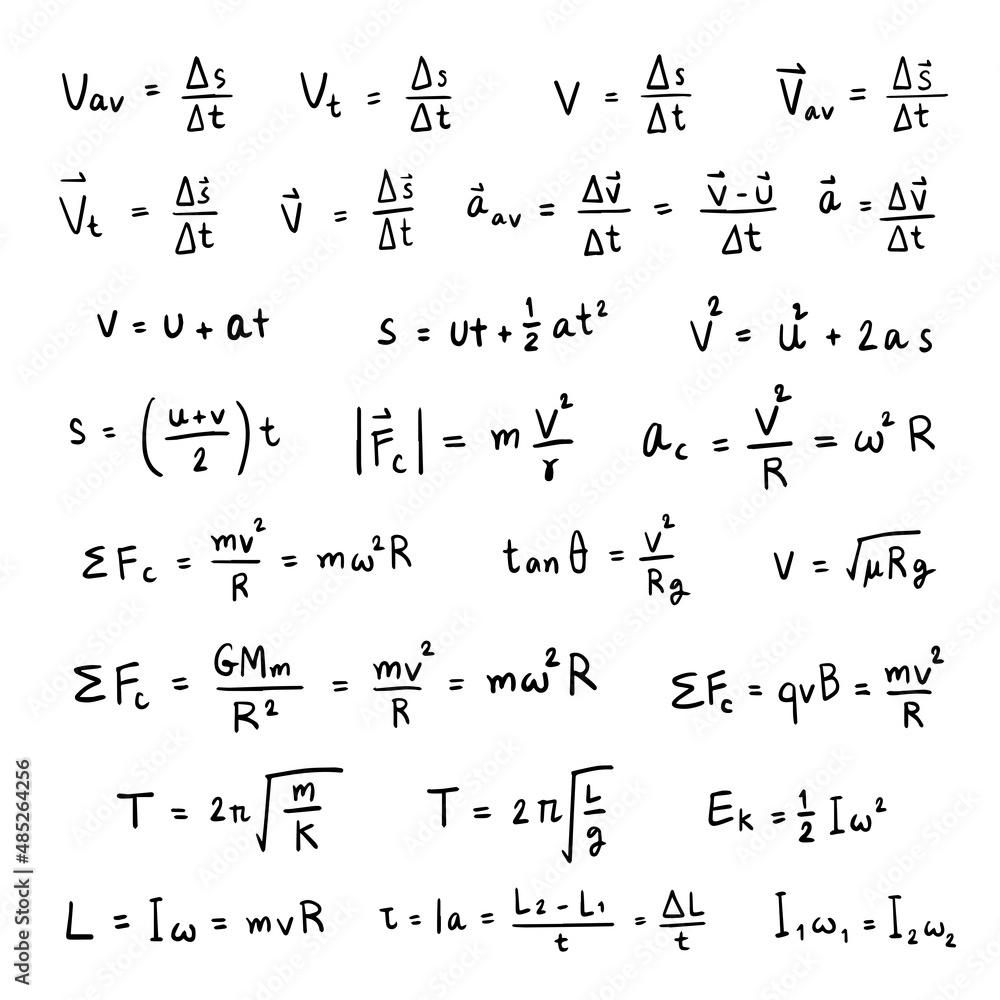 Vav = Δs/Δt   Vt = Δs/Δt   V = Δs/Δt   V⃗av = Δs⃗/Δt
V⃗t = Δs⃗/Δt   V⃗ = Δs⃗/Δt   a⃗av = Δv⃗/Δt = (v⃗ - u⃗)/Δt   a⃗ = Δv⃗/Δt
v = u + at   s = ut + ½ at²   V² = u² + 2as
s = ((u+v)/2)t   |F⃗c| = m V²/r   ac = V²/R = ω²R
ΣFc = mv²/R = mω²R   tanθ = v²/Rg   v = √(μRg)
ΣFc = GMm/R² = mv²/R = mω²R   ΣFc = qvB = mv²/R
T = 2π√(m/K)   T = 2π√(L/g)   EK = ½ Iω²
L = Iω = mvR   τ = Ia = (L₂ - L₁)/t = ΔL/t   I₁ω₁ = I₂ω₂
Adobe Stock | #485264256
Adobe Stock